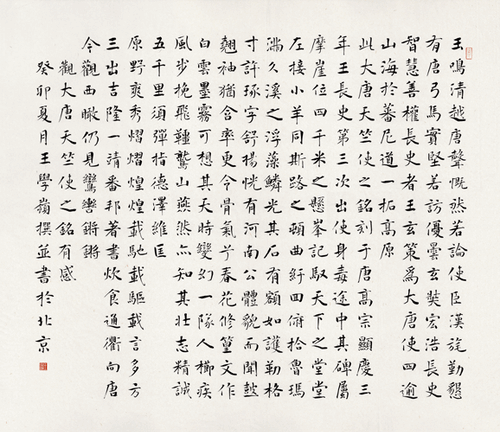 玉鳴清越唐聲慨然若論使臣漢旌勤懇
有唐弓馬實堅若訪優曇玄奘宏浩長史
智慧善權長史者王玄策爲大唐使四逾
山海於蕃尼道一拓高原
此大唐天竺使之銘刻于唐高宗顯慶三
年王長史第三次出使身毒途中其碑屬
摩崖位四千米之懸峯記馭天下之堂堂
左接小羊同斯路之頓曲紆四俯拾魯瑪
湍久溪之浮藻鱗光其石有額如護勒格
寸許琢字舒楊恍有河南公體貌而闕鼓
翹袖猶含率更令骨氣兮春花修篁文作
白雲墨霧可想其天時變幻一隊人櫛疾
風步挽飛鞚鷲山燕然知其壯志精誠
五千里須彌指德澤維匡
原野爽秀熠熠煌煌載馳載驅載言多方
三出吉隆一清番邦著書炊食通衢向唐
今觀西瞰仍見鸞轡鏘鏘
觀大唐天竺使之銘有感
癸卯夏月王學嶺撰並書於北京